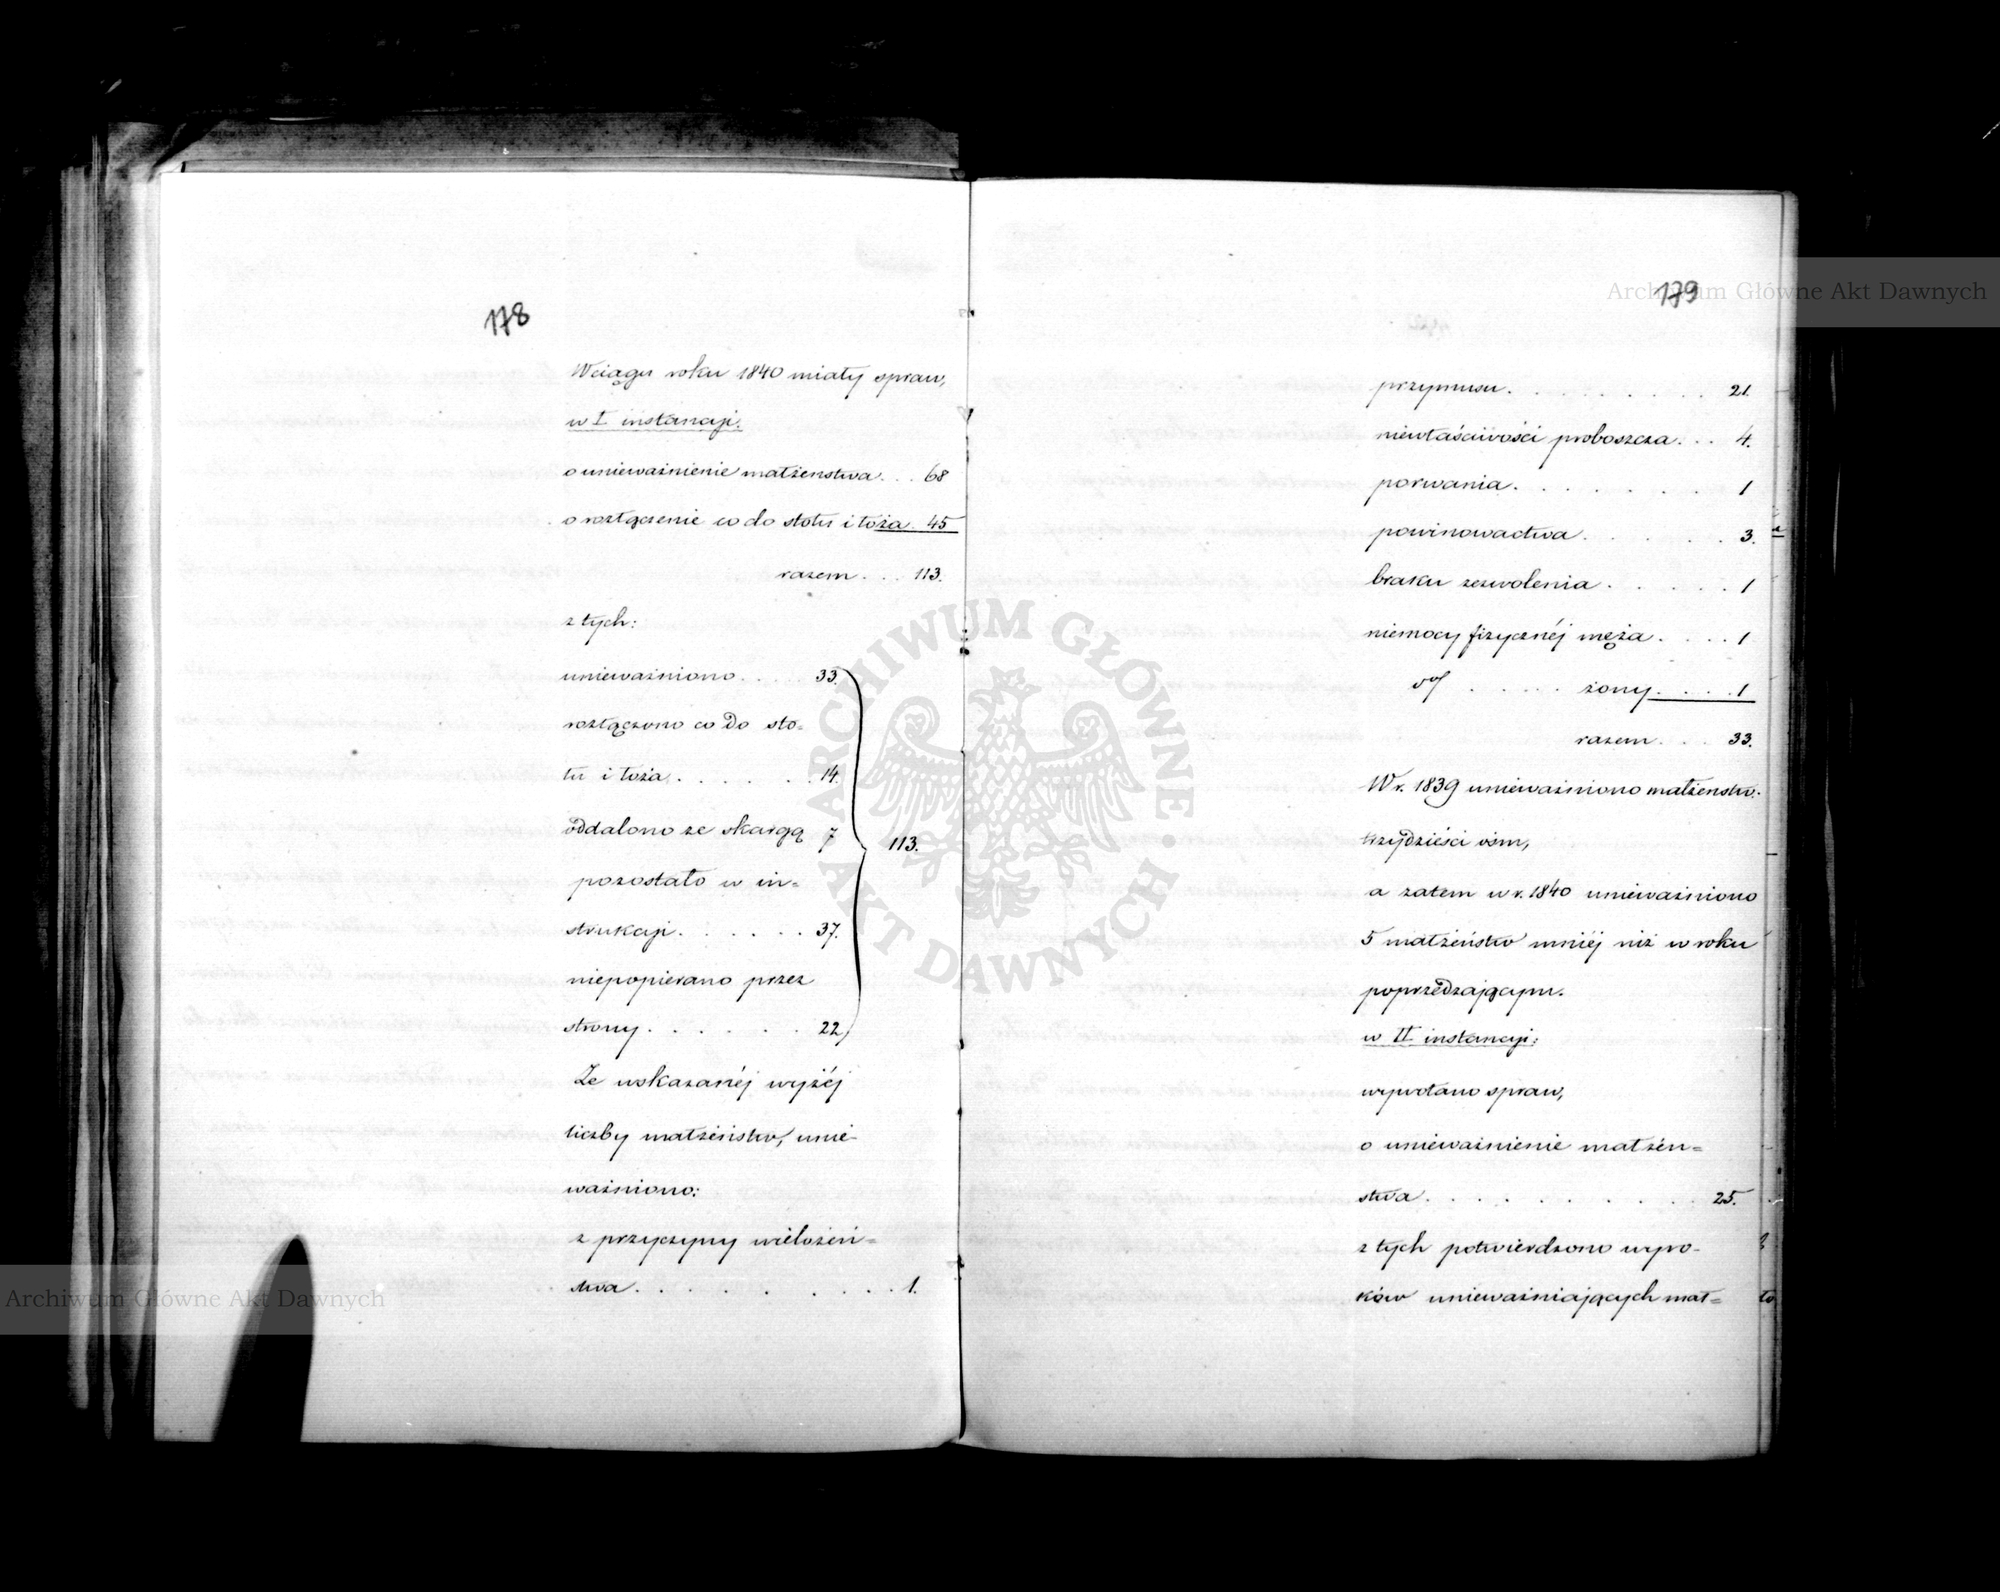 178
Wciągu roku 1840 miały spraw,
w I instancji.
o unieważnienie małżenstwa . . . 68
o rozłączenie co do stołu i łoża . 45
razem . . . 113.
z tych:
unieważniono . . . . . 33.
rozłączono co do sto=
łu i łoża . . . . . . . 14.
oddalono ze skargą 7
pozostało w in=
strukcji . . . . . . 37.
niepopierano przez
strony . . . . . . 22,
113.
Ze wskazanéj wyżéj
liczby małżeństw, unie-
ważniono:
z przyczyny wielożeń=
stwa . . . . . . . . . 1.
179
przymusu . . . . . . . . . 21.
niewłaściwości proboszcza . . . 4.
porwania . . . . . . . 1
powinowactwa . . . . . . 3.
braku zezwolenia . . . . . . 1
niemocy fizycznéj męża . . . . 1
. . . . . żony . . . . 1
razem . . . 33.
W r. 1839 unieważniono małżenstw.
trzydzieści ośm,
a zatem w r. 1840 unieważniono
5 małżeństw mniéj niż w roku
poprzedzającym.
w II instancji:
wywołano spraw,
o unieważnienie małżen=
stwa . . . . . . . . . . 25.
z tych potwierdzono wyro-
ków unieważniających mał=
Archiwum Główne Akt Dawnych
Archiwum Główne Akt Dawnych
ARCHIWUM GŁÓWNE • AKT DAWNYCH •